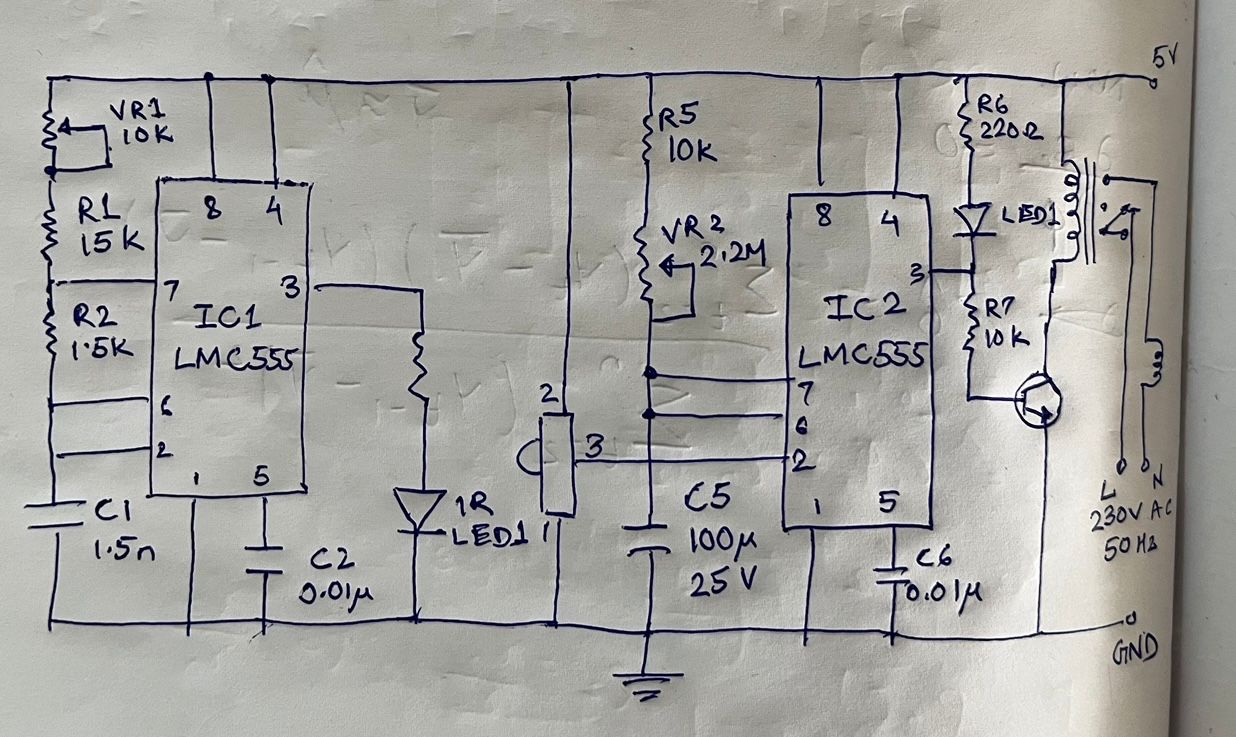 5V
VR1
10K
R1
15K
R2
1.5K
8 4
7
3
IC1
LMC555
6
2
1 5
C1
1.5n
C2
0.01µ
1R
LED1
2
3
1
R5
10K
VR2
2.2M
8 4
3
IC2
LMC555
7
6
2
1 5
C5
100µ
25V
C6
0.01µ
R6
220Ω
LED1
R7
10K
L N
230V AC
50Hz
GND